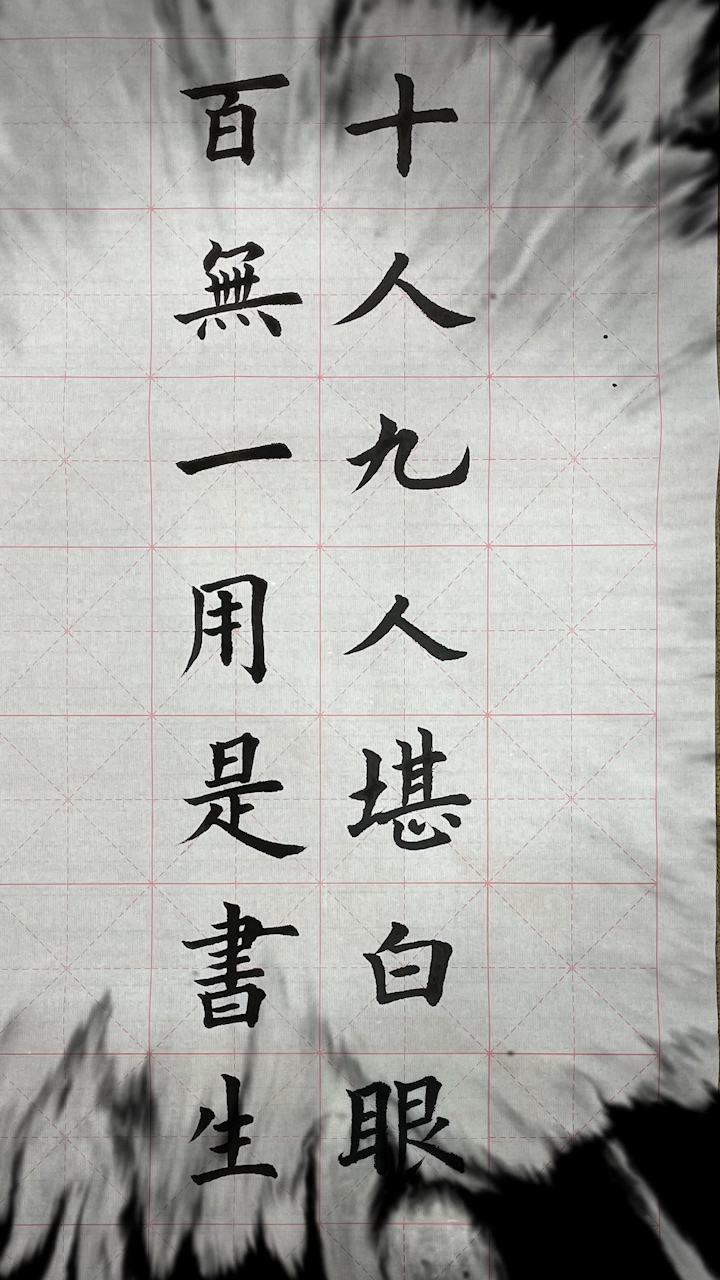 十人九人堪白眼
百無一用是書生